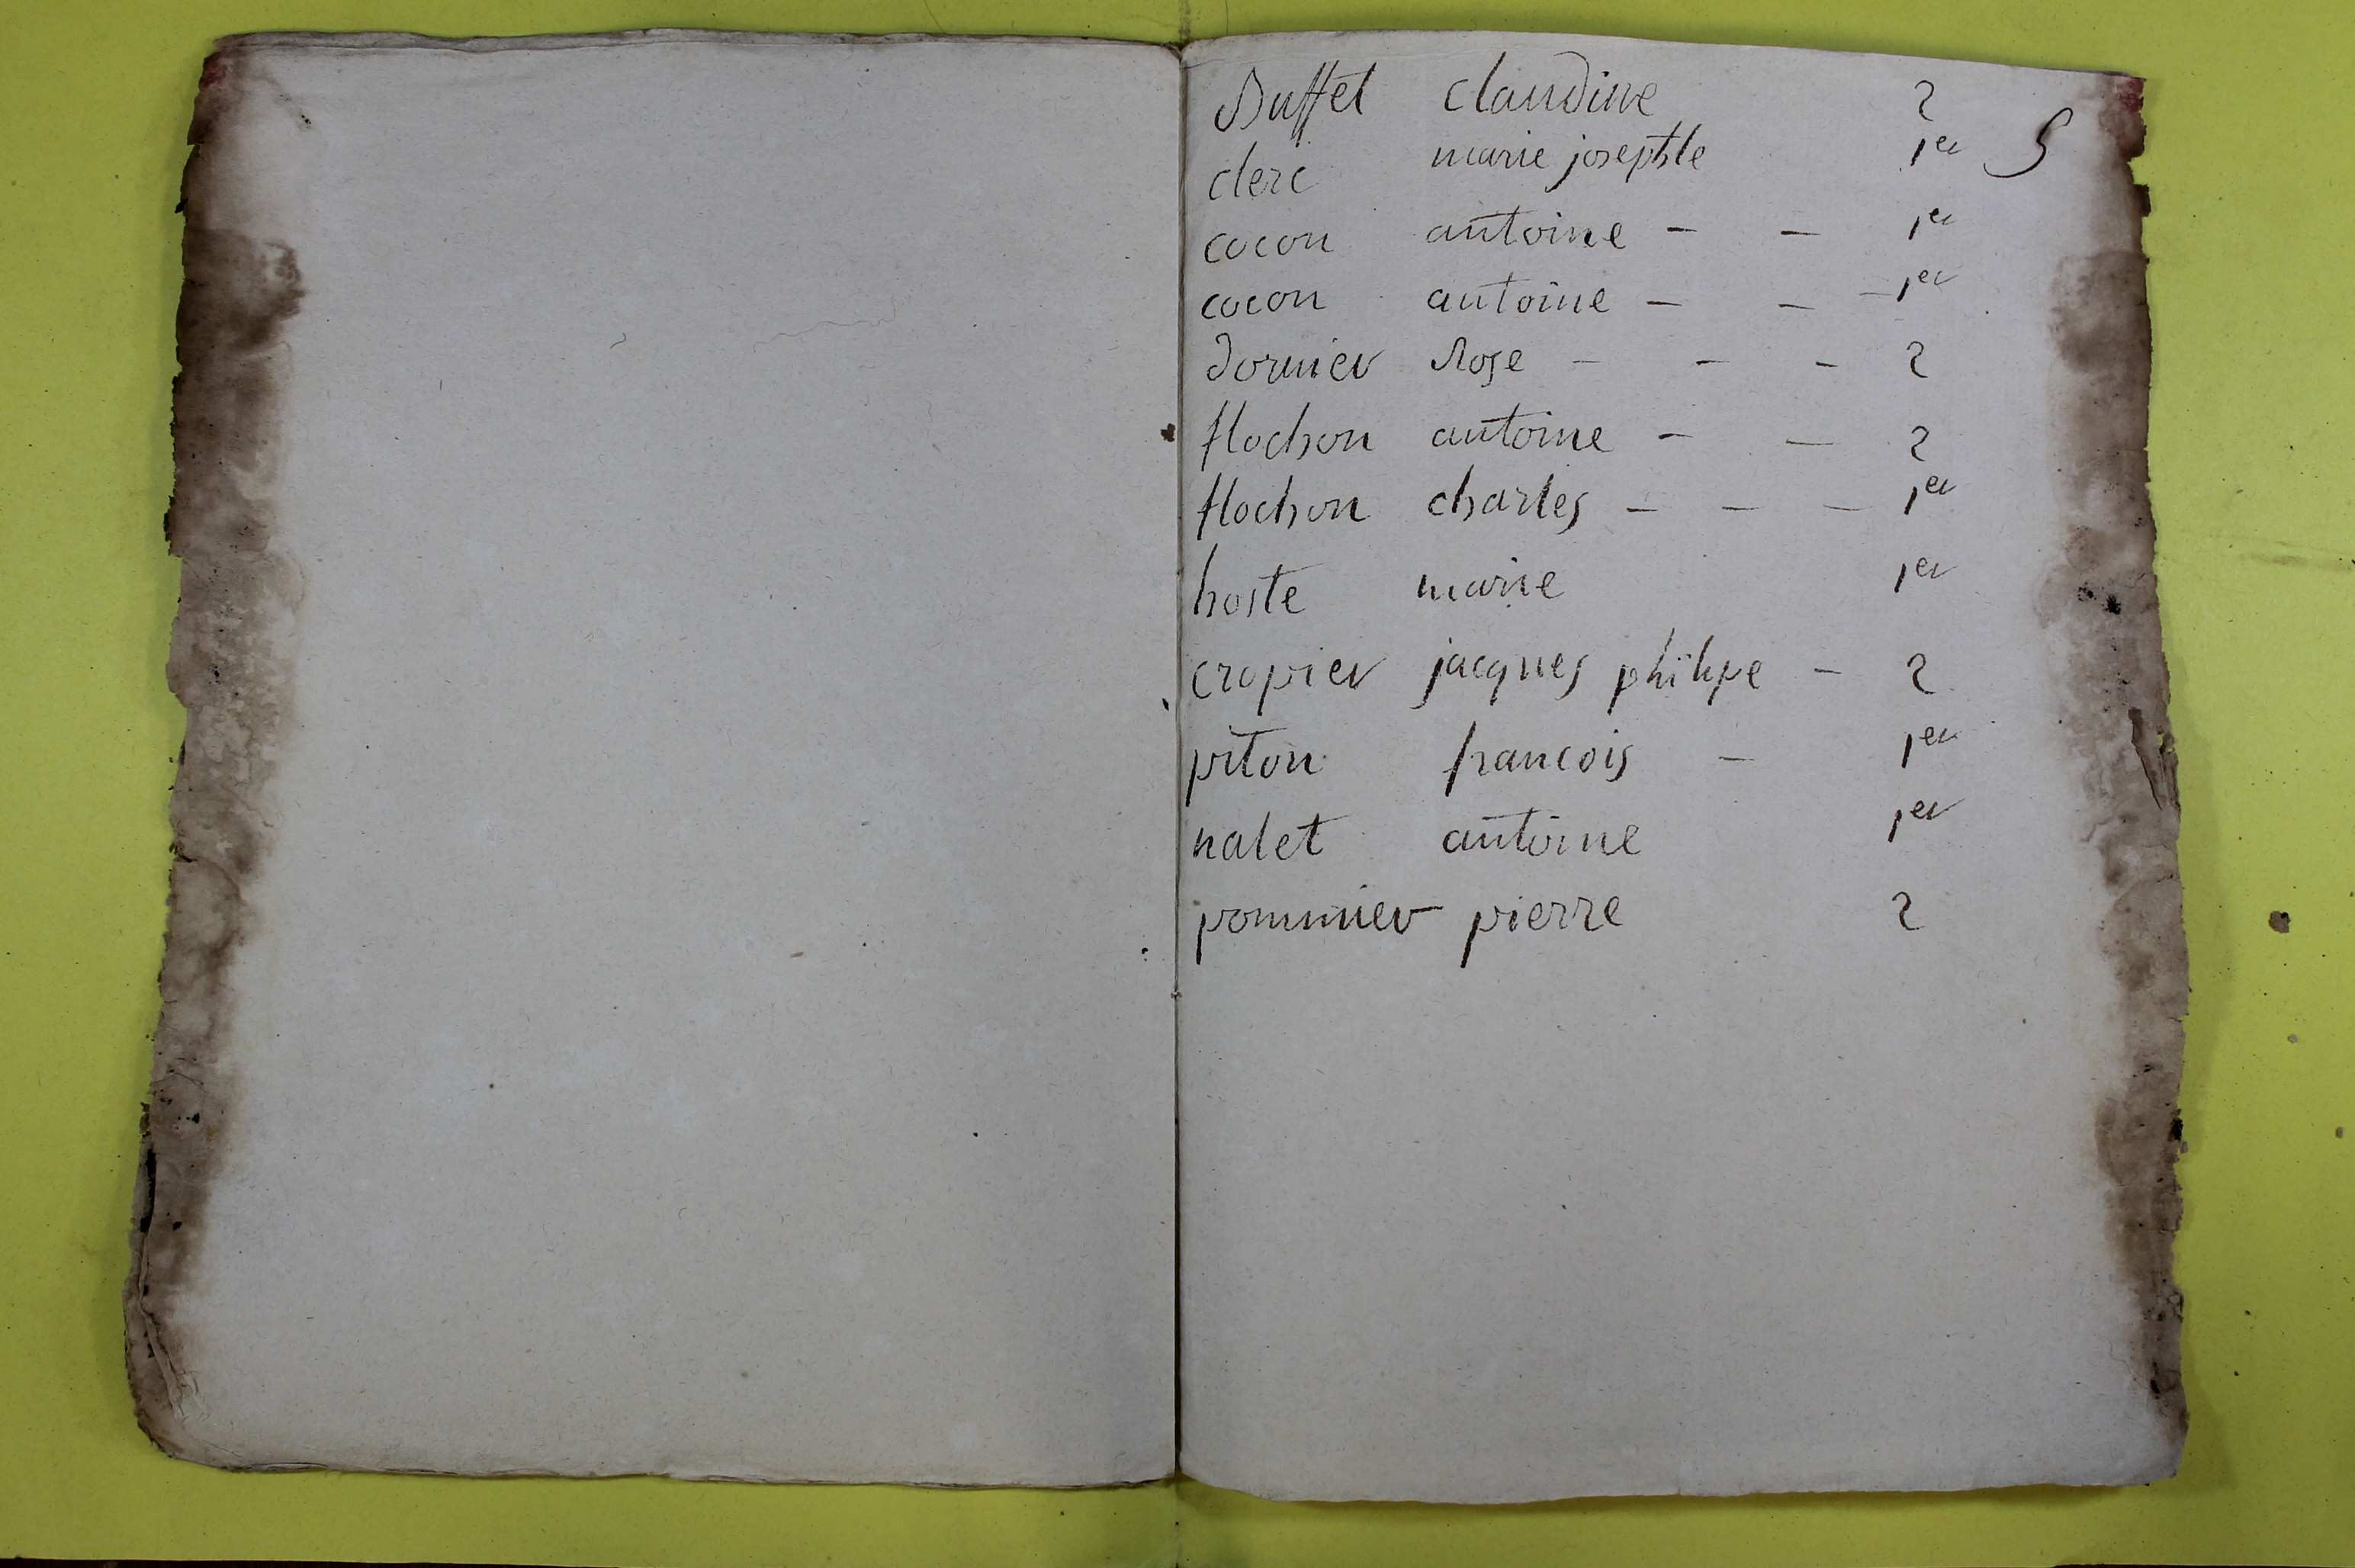 Buffet claudine 2
clerc marie josephte 1er 5
cocon antoine - - 1er
cocon antoine - - - 1er
dornier Rose - - - 2
flochon antoine - - 2
flochon charles - - - 1er
hoste marie 1er
cropier jacques philipe - 2
piton francois - 1er
nalet antoine 1er
pommier pierre 2